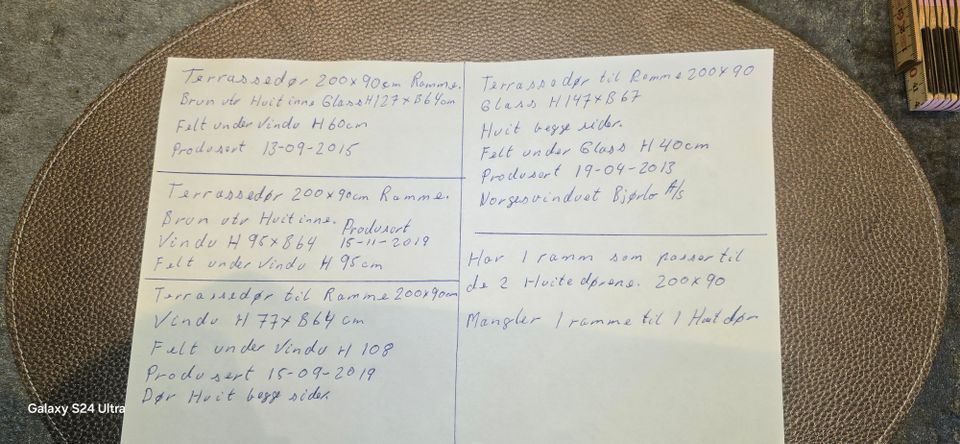 Terrassedør 200x90cm Ramme.
Brun utv Hvit inne Glass H127xB64cm
Felt under Vindu H60cm
Produsert 13-09-2015
Terrassedør 200x90cm Ramme.
Brun utv Hvit inne. Produsert
Vindu H 95xB64 15-11-2019
Felt under Vindu H 95cm
Terrassedør til Ramme 200x90cm
Vindu H 77x B64 cm
Felt under Vindu H 108
Produsert 15-09-2019
Dør Hvit begge sider
Terrassedør til Ramme 200x90
Glass H147xB67
Hvit begge sider.
Felt under Glass H 40cm
Produsert 19-04-2013
Norgesvinduet Bjørlo A/s
Har 1 ramm som passer til
de 2 Hvite dørene. 200x90
Mangler 1 ramme til 1 Hvit dør
Galaxy S24 Ultra